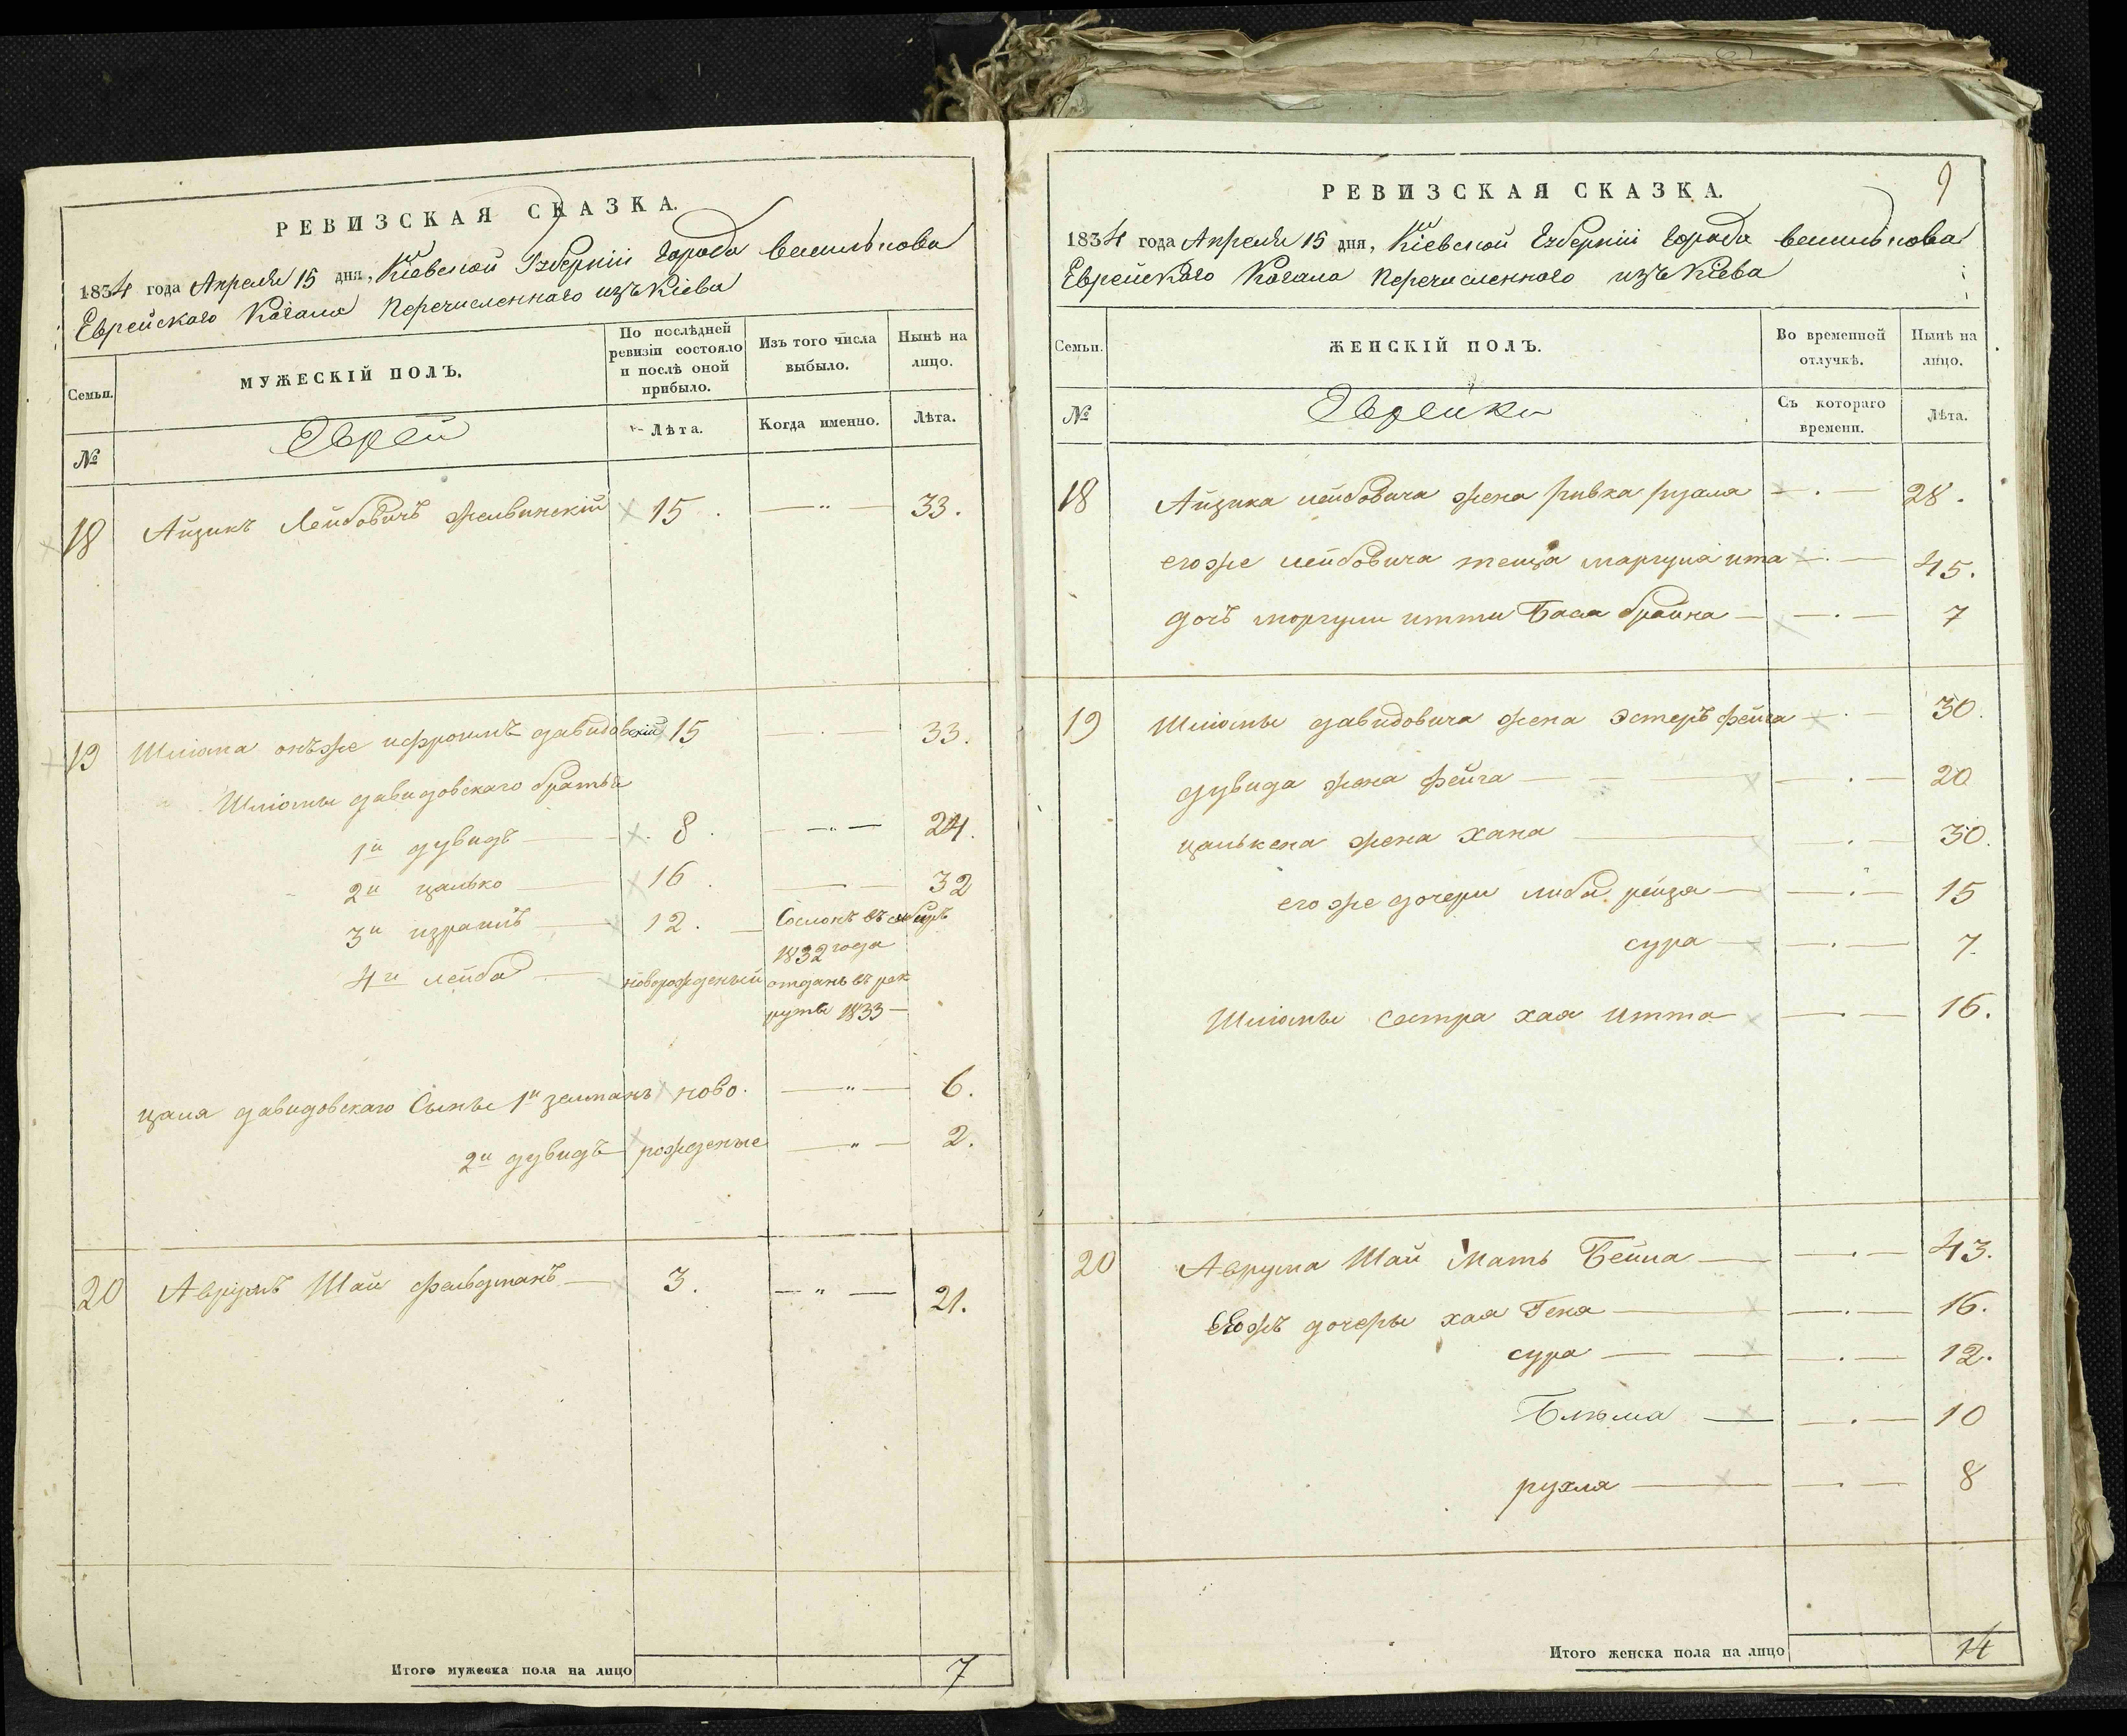 РЕВИЗСКАЯ СКАЗКА.
1834 года Апреля 15 дня, Кіевской Губерніи Города Василькова
Еврейскаго Кагала Перечисленнаго изъ Кіева
Семьи.
МУЖЕСКІЙ ПОЛЪ.
По послѣдней ревизіи состояло и послѣ оной прибыло.
Изъ того числа выбыло.
Нынѣ на лицо.
№
Еврей
Лѣта.
Когда именно.
Лѣта.
18 Айзикъ Лейбовичъ 15. —„— 33.
19 Шліома онъже ифроимъ давидовскій 15 — . — 33.
Шліомы давидовскаго братья
1й дувидъ — 8. —„— 24.
2й цалько — 16. — . — 32
3й израиль — 12. — Сосланъ въ сибирь
1832 года
4й лейба — новорожденый отданъ въ рек
руты 1833 —
цаля давидовскаго Сыны 1й зелманъ ново. —„— 6.
2й дувидъ рожденые —„— 2.
20 Аврумъ Шаи фельдманъ — 3. —„— 21.
Итого мужеска пола на лицо 7
9
РЕВИЗСКАЯ СКАЗКА.
1834 года Апреля 15 дня, Кіевской Губерніи Города Василькова
Еврейскаго Кагала Перечисленнаго изъ Кіева
Семьи.
ЖЕНСКІЙ ПОЛЪ.
Во временной отлучкѣ.
Нынѣ на лицо.
№
Еврейки
Съ котораго времени.
Лѣта.
18 Айзика лейбовича жена ривка рузаля — . — 28.
егоже лейбовича теща маргула ита — . — 45.
дочъ моргули итти Бася брайна — — . — 7
19 Шліомы давидовича жена эстеръ фейга — . — 30.
дувида жена фейга — — . — 20
цалькена жена хана — — . — 30.
его же дочери либа рейза — — . — 15
сура — — . — 7.
Шліомы Сестра хая итта — . — 16.
20 Аврума Шаи Мать Бейла — — . — 43.
Еяжъ дочеры хая Геня — — . — 16.
сура — — — . — 12.
Блюма — — . — 10
рухля — — . — 8
Итого женска пола на лицо 14